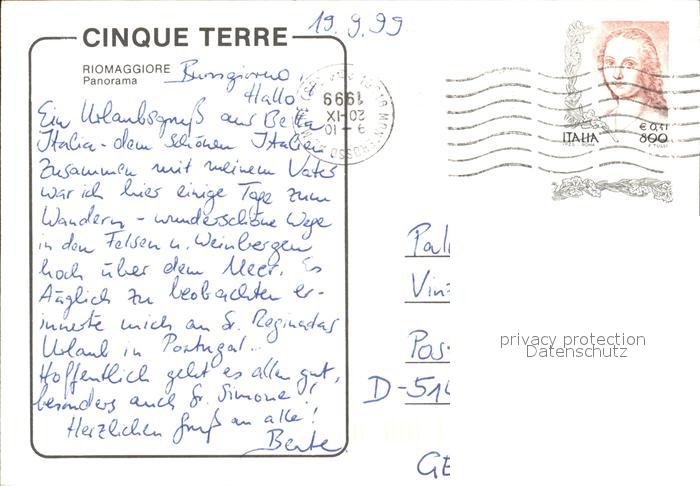 19.9.99
CINQUE TERRE
RIOMAGGIORE
Panorama
Buongiorno,
Hallo!
Ein Urlaubsgruß aus Bella
Italia - dem schönen Italien
Zusammen mit meinem Vater
war ich hier einige Tage zum
Wandern - wunderschöne Wege
in den Felsen u. Weinbergen
hoch über dem Meer. Es
täglich zu beobachten er-
innerte mich an Sr. Reginadas
Urlaub in Portugal...
Hoffentlich geht es allen gut,
besonders auch Sr. Simone!
Herzlichen Gruß an alle!
Beate
9-10
20-IX
1999
MONTEROSSO
€ 0,41
ITALIA 800
Pall
Vinz
Pos
D-514
GE
privacy protection
Datenschutz